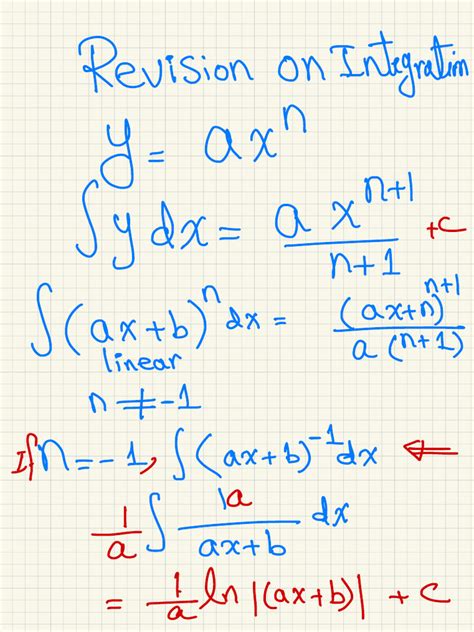 Revision on Integration
y = ax^n
∫ y dx = a x^(n+1) / (n+1) + c
∫ (ax+b)^n dx = (ax+n)^(n+1) / a(n+1)
linear
n ≠ -1
If n = -1, ∫ (ax+b)^-1 dx ⇐
1/a ∫ 1a / (ax+b) dx
= 1/a ln |(ax+b)| + c